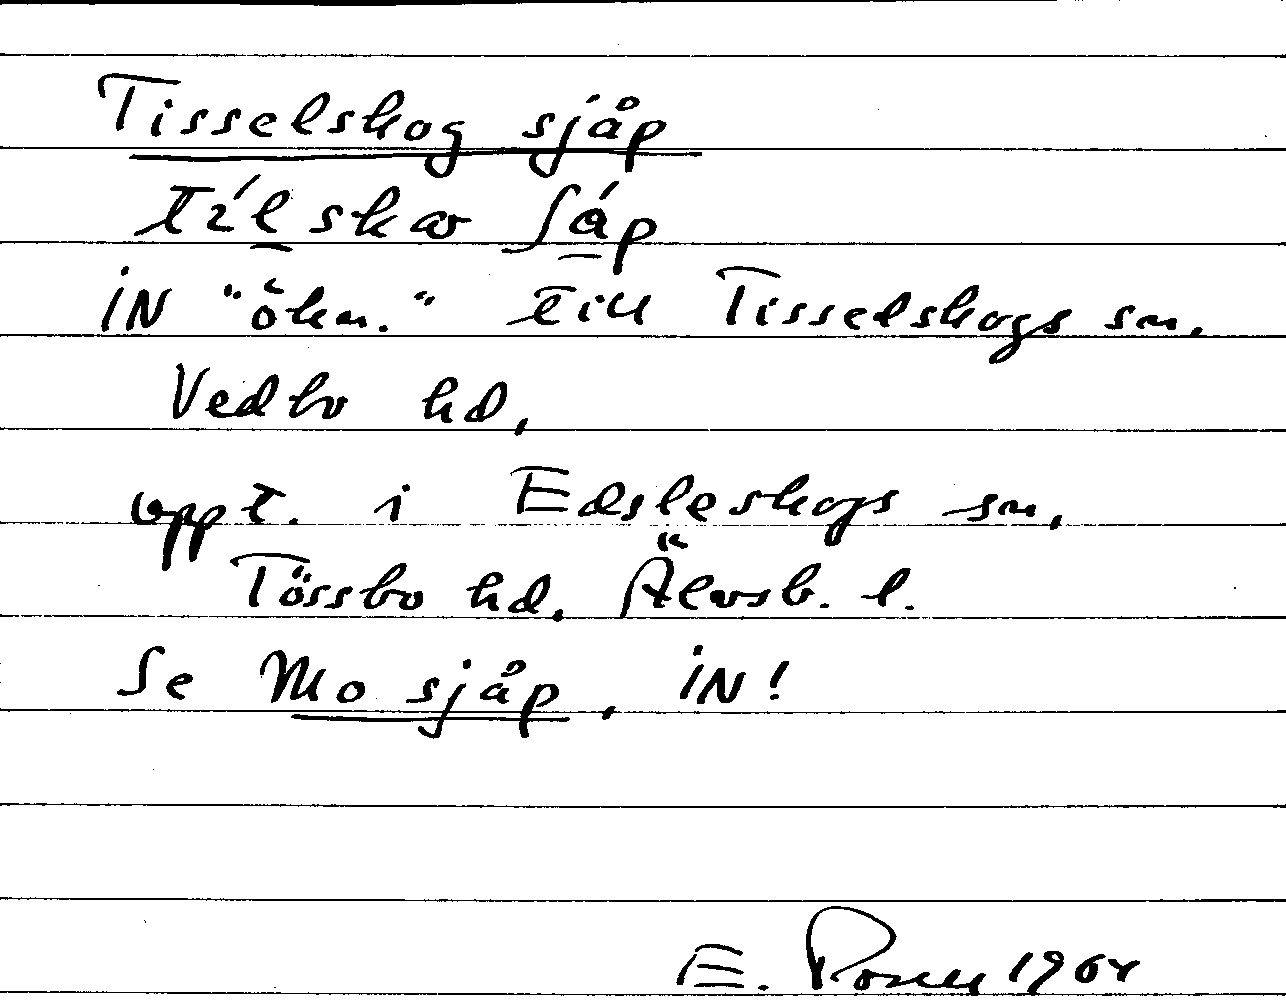 Tisselskog sjåp
IN "ökn." till Tisselskogs sn,
Vedbo hd,
uppt. i Edsleskogs sn,
Tössbo hd. Älvsb. l.
Se Mo sjåp, IN!
E. 196